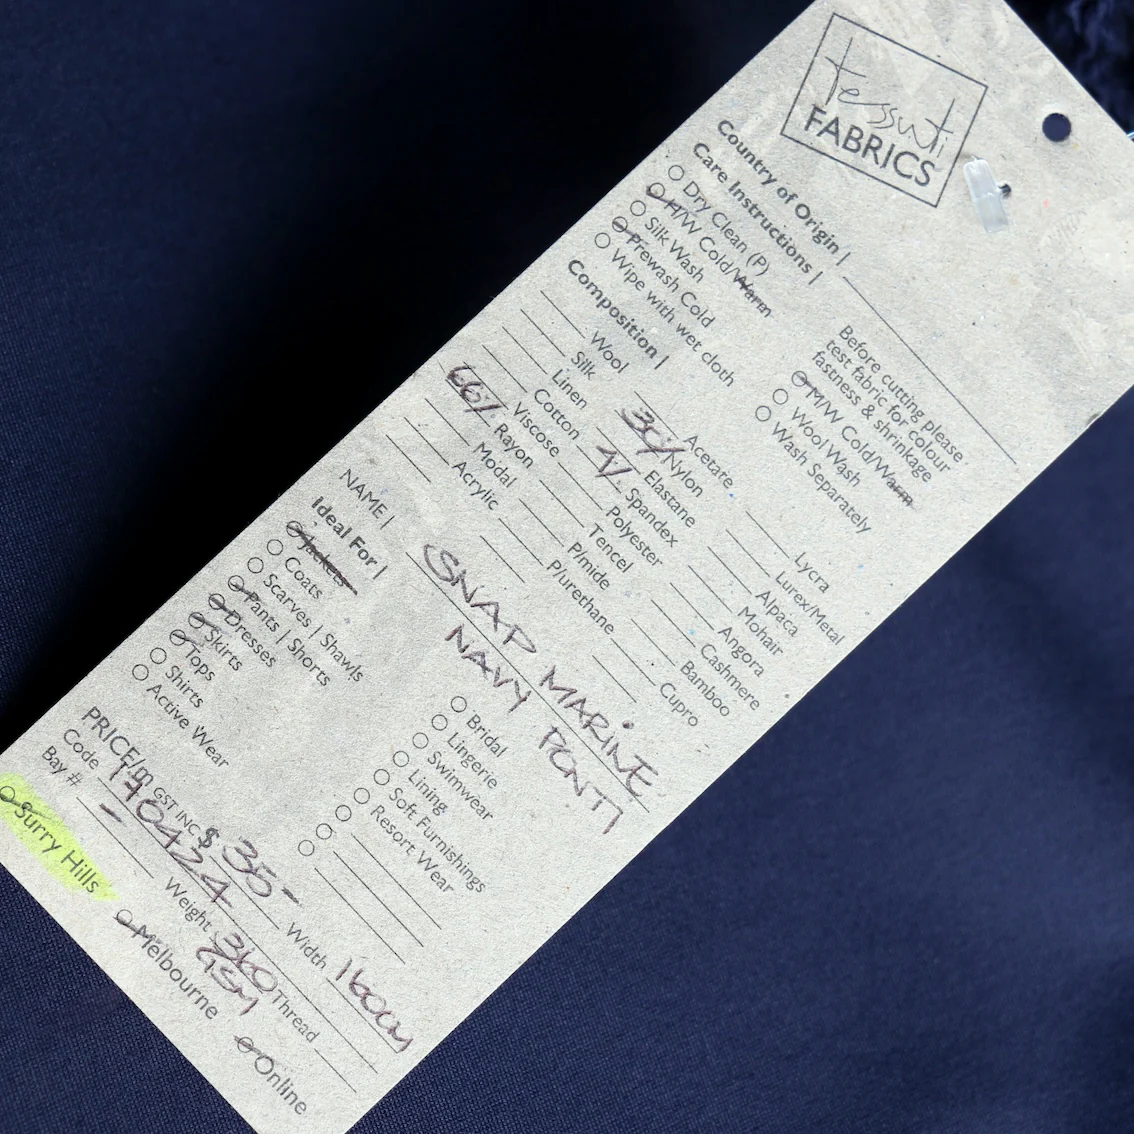 tessuti
FABRICS
Country of Origin |
Care Instructions |
Dry Clean (P)
H/W Cold/Warm
Silk Wash
Prewash Cold
Wipe with wet cloth
Before cutting please
test fabric for colour
fastness & shrinkage
M/W Cold/Warm
Wool Wash
Wash Separately
Composition |
Wool
Silk
Linen
Cotton
Viscose
66% Rayon
Modal
Acrylic
Acetate
30% Nylon
Elastane
Spandex
Polyester
Tencel
P/mide
P/urethane
Lycra
Lurex/Metal
Alpaca
Mohair
Angora
Cashmere
Bamboo
Cupro
NAME | SNAP MARINE
NAVY PONTI
Ideal For |
Jackets
Coats
Scarves | Shawls
Pants | Shorts
Dresses
Skirts
Tops
Shirts
Active Wear
Bridal
Lingerie
Swimwear
Lining
Soft Furnishings
Resort Wear
PRICE/m GST INC $ 35-
Width 160cm
Code 170424
Weight 360 GSM
Thread
Bay # -
Surry Hills
Melbourne
Online